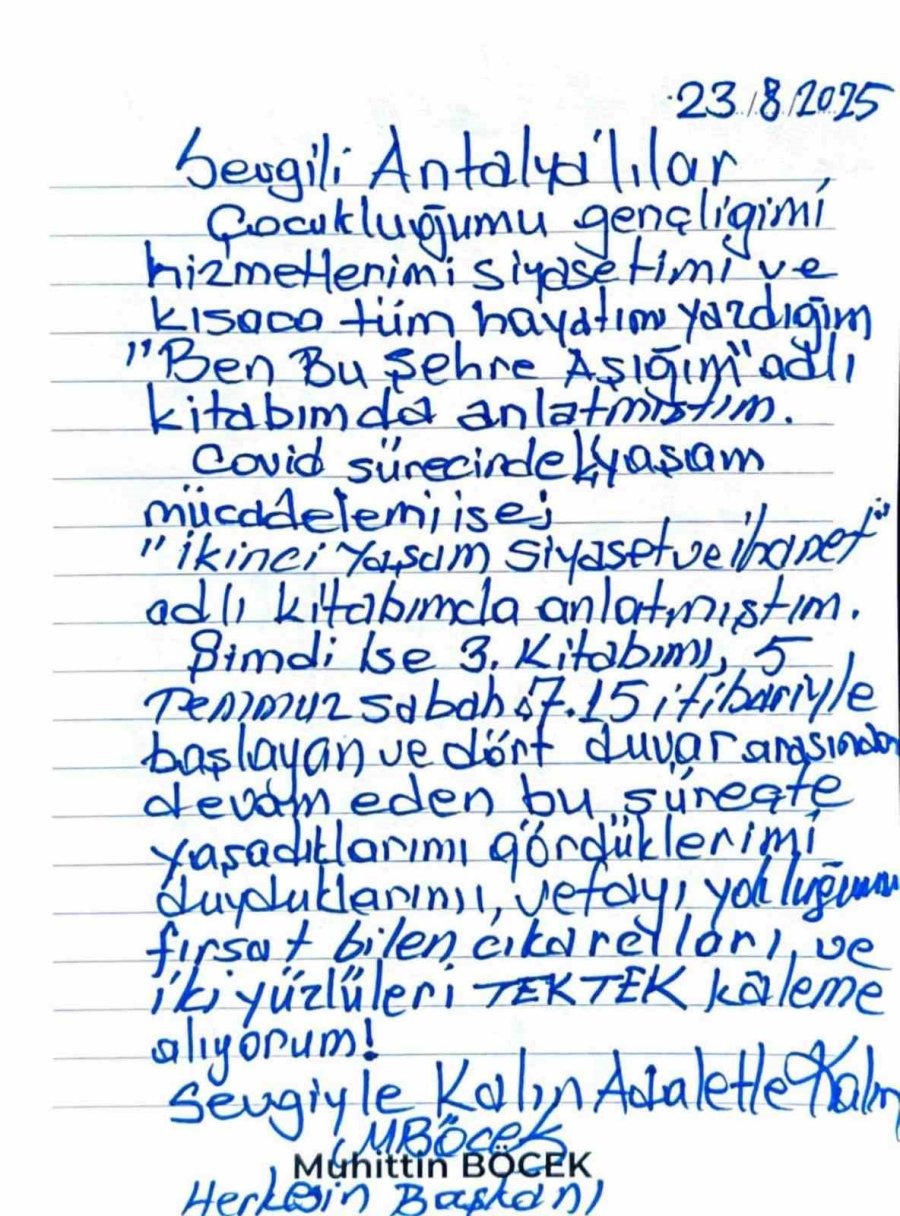 23/8/2025
Sevgili Antalya'lılar
Çocukluğumu gençliğimi,
hizmetlerimi siyasetimi ve
kısaca tüm hayatımı yazdığım
"Ben Bu Şehre Aşığım" adlı
kitabımda anlatmıştım.
Covid sürecindeki yaşam
mücadelemi ise;
"İkinci Yaşam Siyaset ve ihanet"
adlı kitabımda anlatmıştım.
Şimdi ise 3. Kitabımı, 5
Temmuz sabah 07.15 itibariyle
başlayan ve dört duvar arasından
devam eden bu süreçte
yaşadıklarımı gördüklerimi
duyduklarımı, vefayı yokluğumu
fırsat bilen çıkarcıları, ve
iki yüzlüleri TEK TEK kaleme
alıyorum!
Sevgiyle Kalın Adaletle Kalın
MBöcek
Muhittin BÖCEK
Herkesin Başkanı